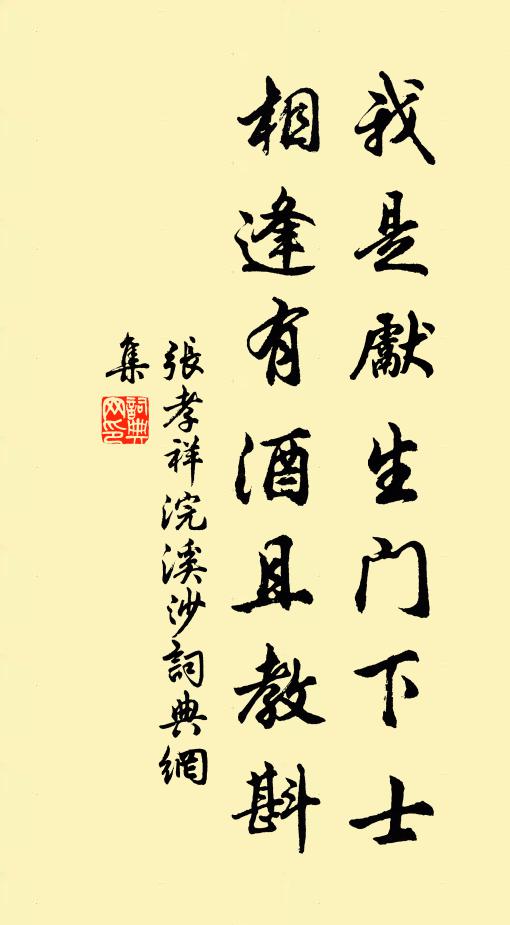 我是獻生門下士
相逢有酒且教斟
張孝祥浣溪沙詞典網
集
詞典網印